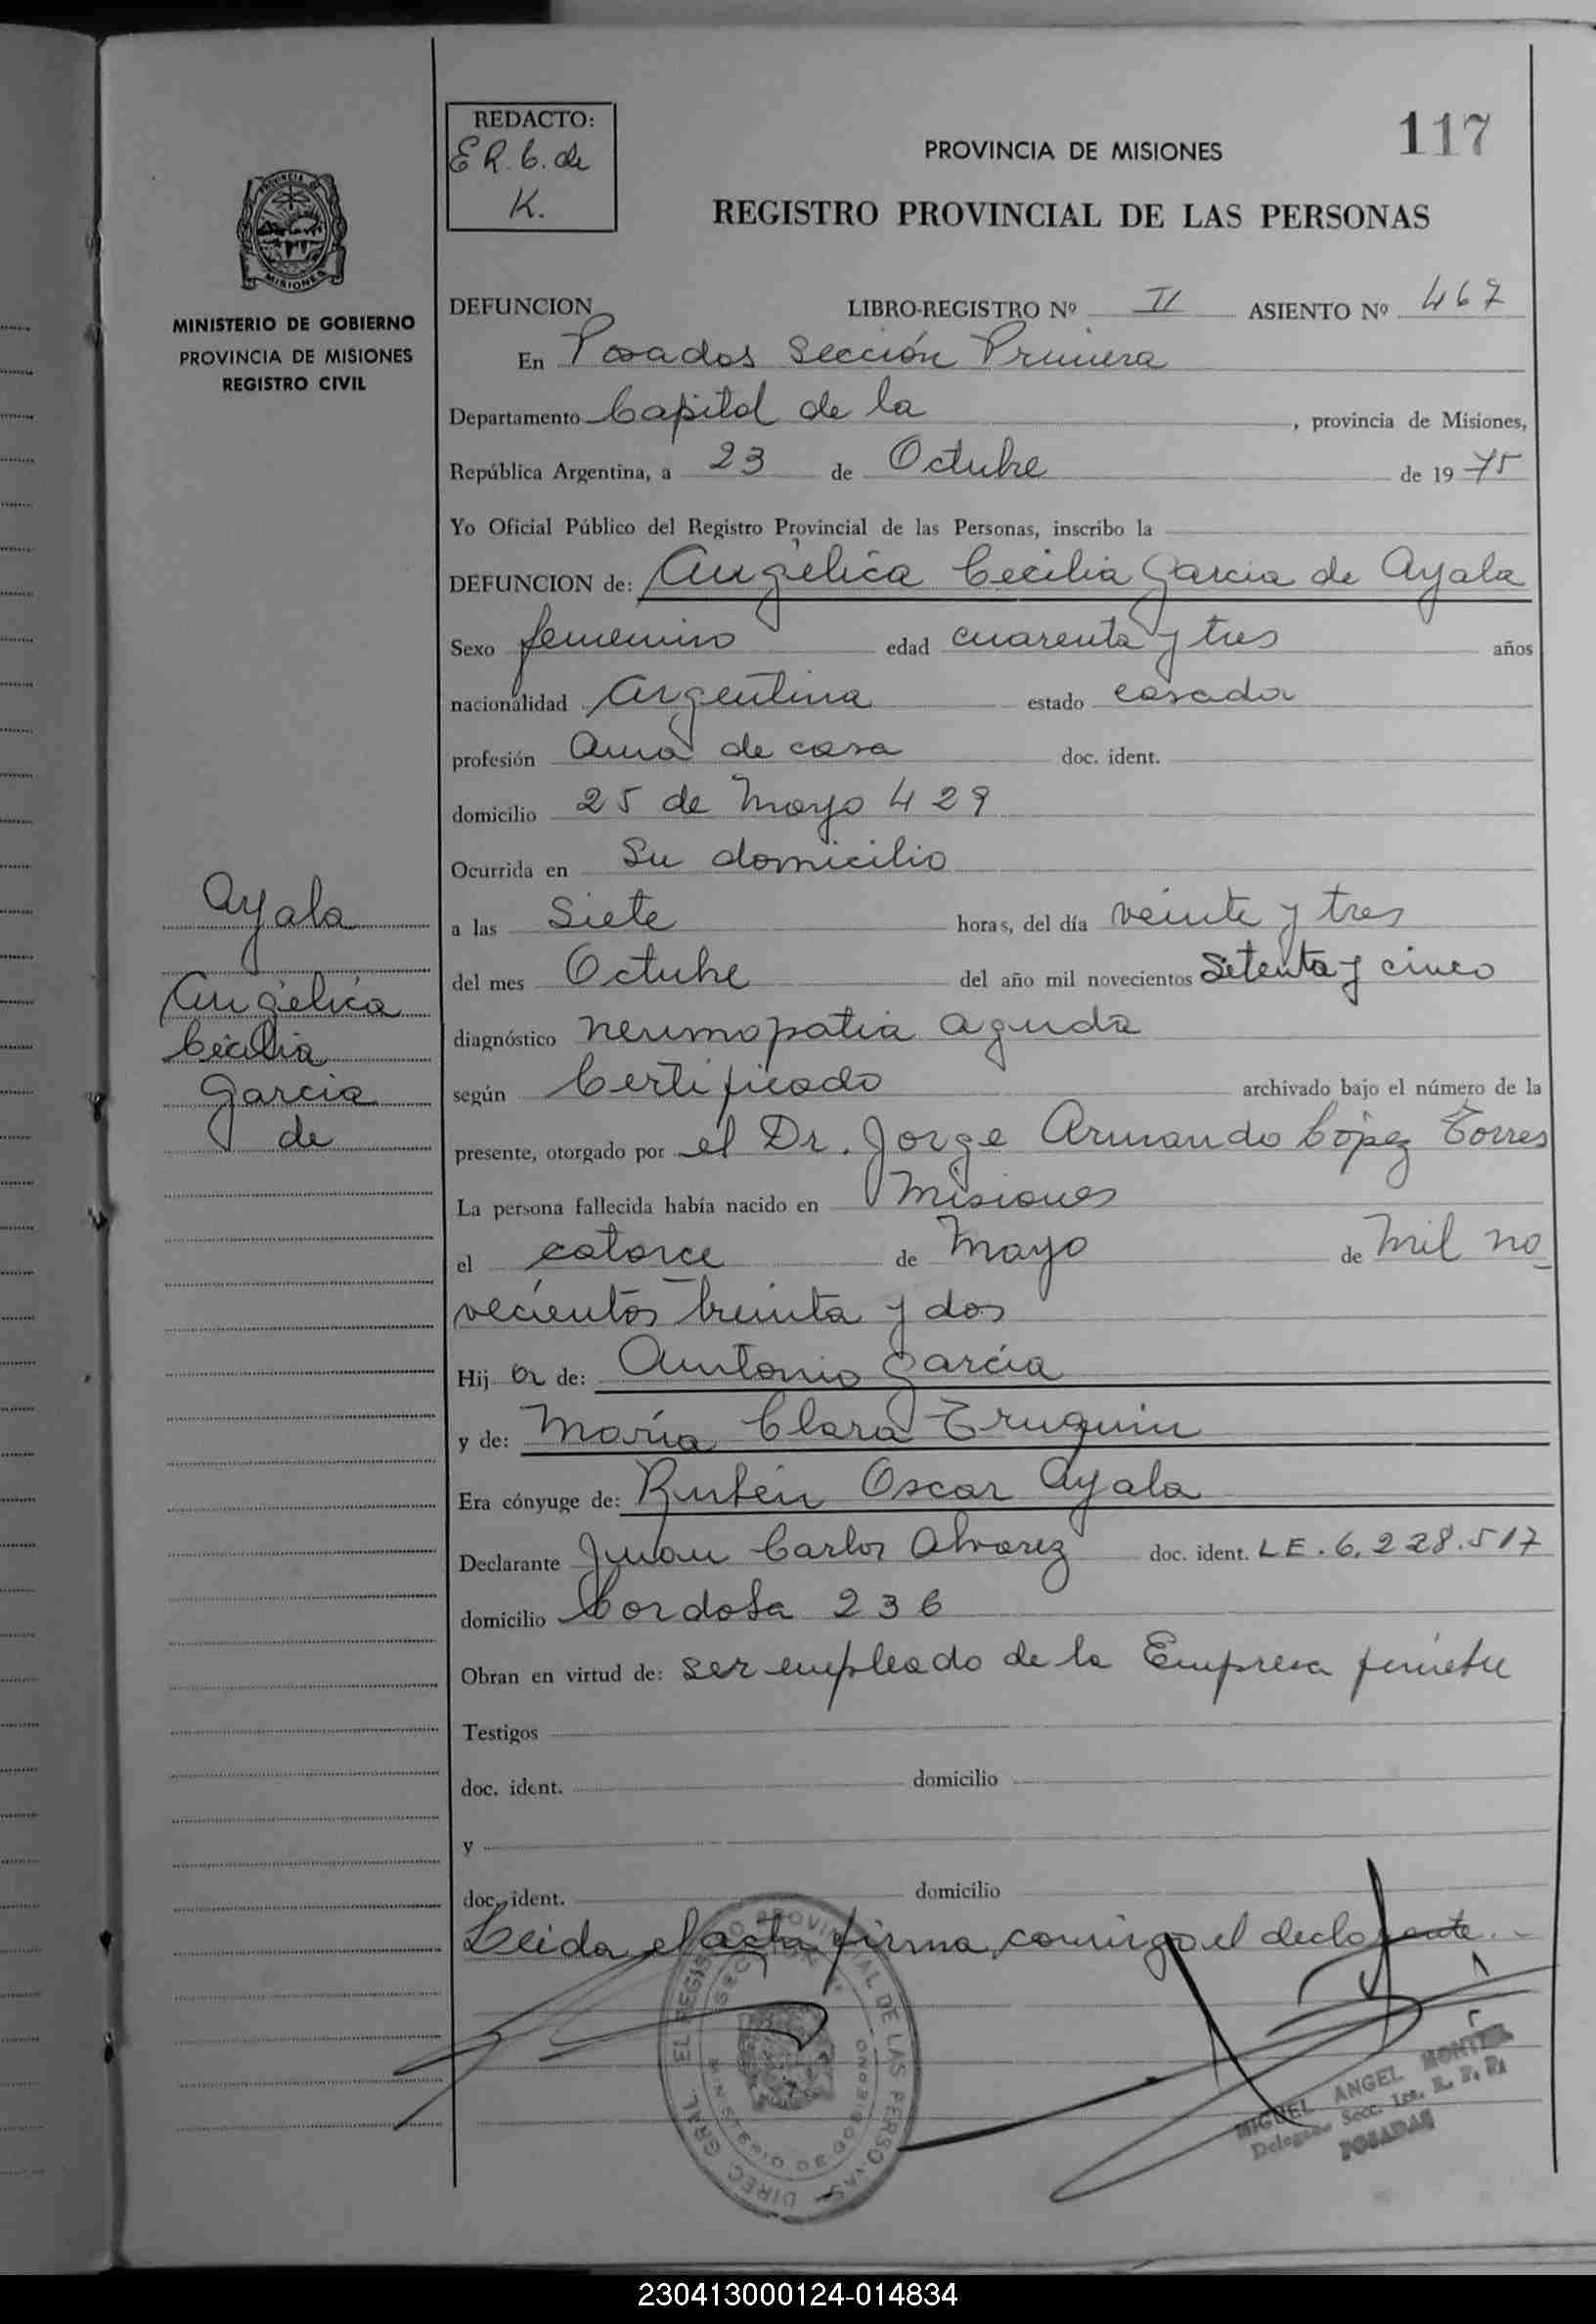 REDACTO:
E R. C. de
K.
117
PROVINCIA DE MISIONES
REGISTRO PROVINCIAL DE LAS PERSONAS
PROVINCIA DE
MISIONES
MINISTERIO DE GOBIERNO
PROVINCIA DE MISIONES
REGISTRO CIVIL
DEFUNCION LIBRO-REGISTRO Nº II ASIENTO Nº 467
En Posadas Sección Primera
Departamento Capital de la, provincia de Misiones,
República Argentina, a 23 de Octubre de 1975
Yo Oficial Público del Registro Provincial de las Personas, inscribo la
DEFUNCION de: Angélica Cecilia Garcia de Ayala
Sexo femenino edad cuarenta y tres años
nacionalidad Argentina estado casada
profesión Ama de casa doc. ident.
domicilio 25 de Mayo 429
Ocurrida en Su domicilio
a las Siete horas, del día veinte y tres
del mes Octubre del año mil novecientos Setenta y cinco
diagnóstico neumopatia aguda
según Certificado archivado bajo el número de la
presente, otorgado por el Dr. Jorge Armando López Torres
La persona fallecida había nacido en Misiones
el catorce de Mayo de Mil no_
vecientos treinta y dos
Hija de: Antonio García
y de: María Clara Truquin
Era cónyuge de: Rubén Oscar Ayala
Declarante Juan Carlos Alvarez doc. ident. LE. 6.228.517
domicilio Cordoba 236
Obran en virtud de: ser empleado de la Empresa fúnebre
Testigos
doc. ident. domicilio
y
doc. ident. domicilio
Leida el acta firma conmigo el declarante.-
Ayala
Angélica
Cecilia
Garcia
de
DIREC GRAL EL REGISTRO PROVINCIAL DE LAS PERSONAS
MIGUEL ANGEL
Delegado Secc. 1ra. R. P. P.
POSADAS
230413000124-014834